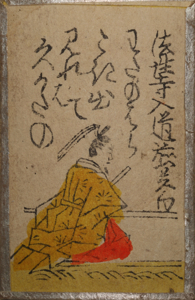 法性寺入道前関白
わたのはら
こき出
てみれは
久かたの